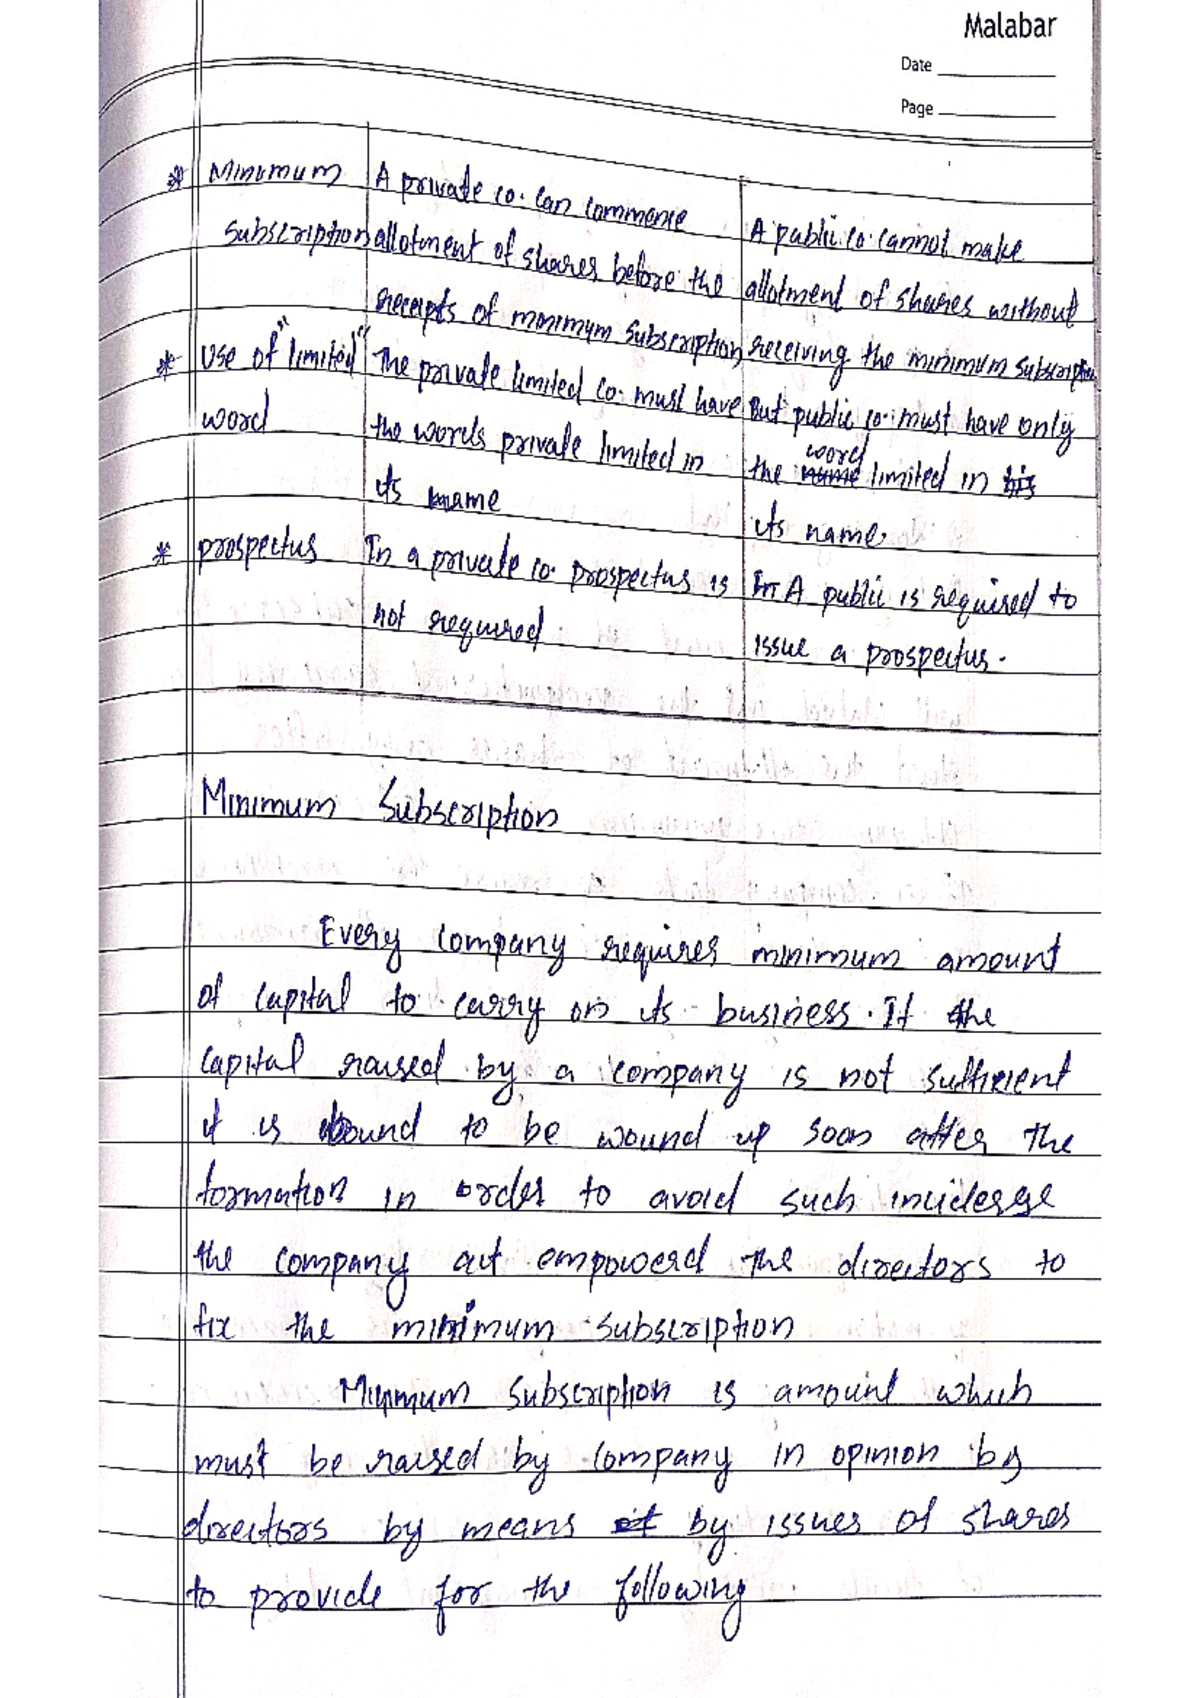 Malabar
Date
Page
* Minimum
Subscription
A private co. can commence
allotment of shares before the
receipts of minimum subscription
A public co. cannot make
allotment of shares without
receiving the minimum subscription
* Use of "limited"
word
The private limited co. must have
the words private limited in
its name
But public co. must have only
the word limited in
its name.
* prospectus
In a private co. prospectus is
not required.
A public is required to
issue a prospectus.
Minimum Subscription
Every company requires minimum amount
of capital to carry on its business. If the
capital raised by a company is not sufficient
it is bound to be wound up soon after the
formation in order to avoid such
the company act empowered the directors to
fix the minimum subscription
Minimum subscription is amount which
must be raised by company in opinion by
directors by means by issues of shares
to provide for the following